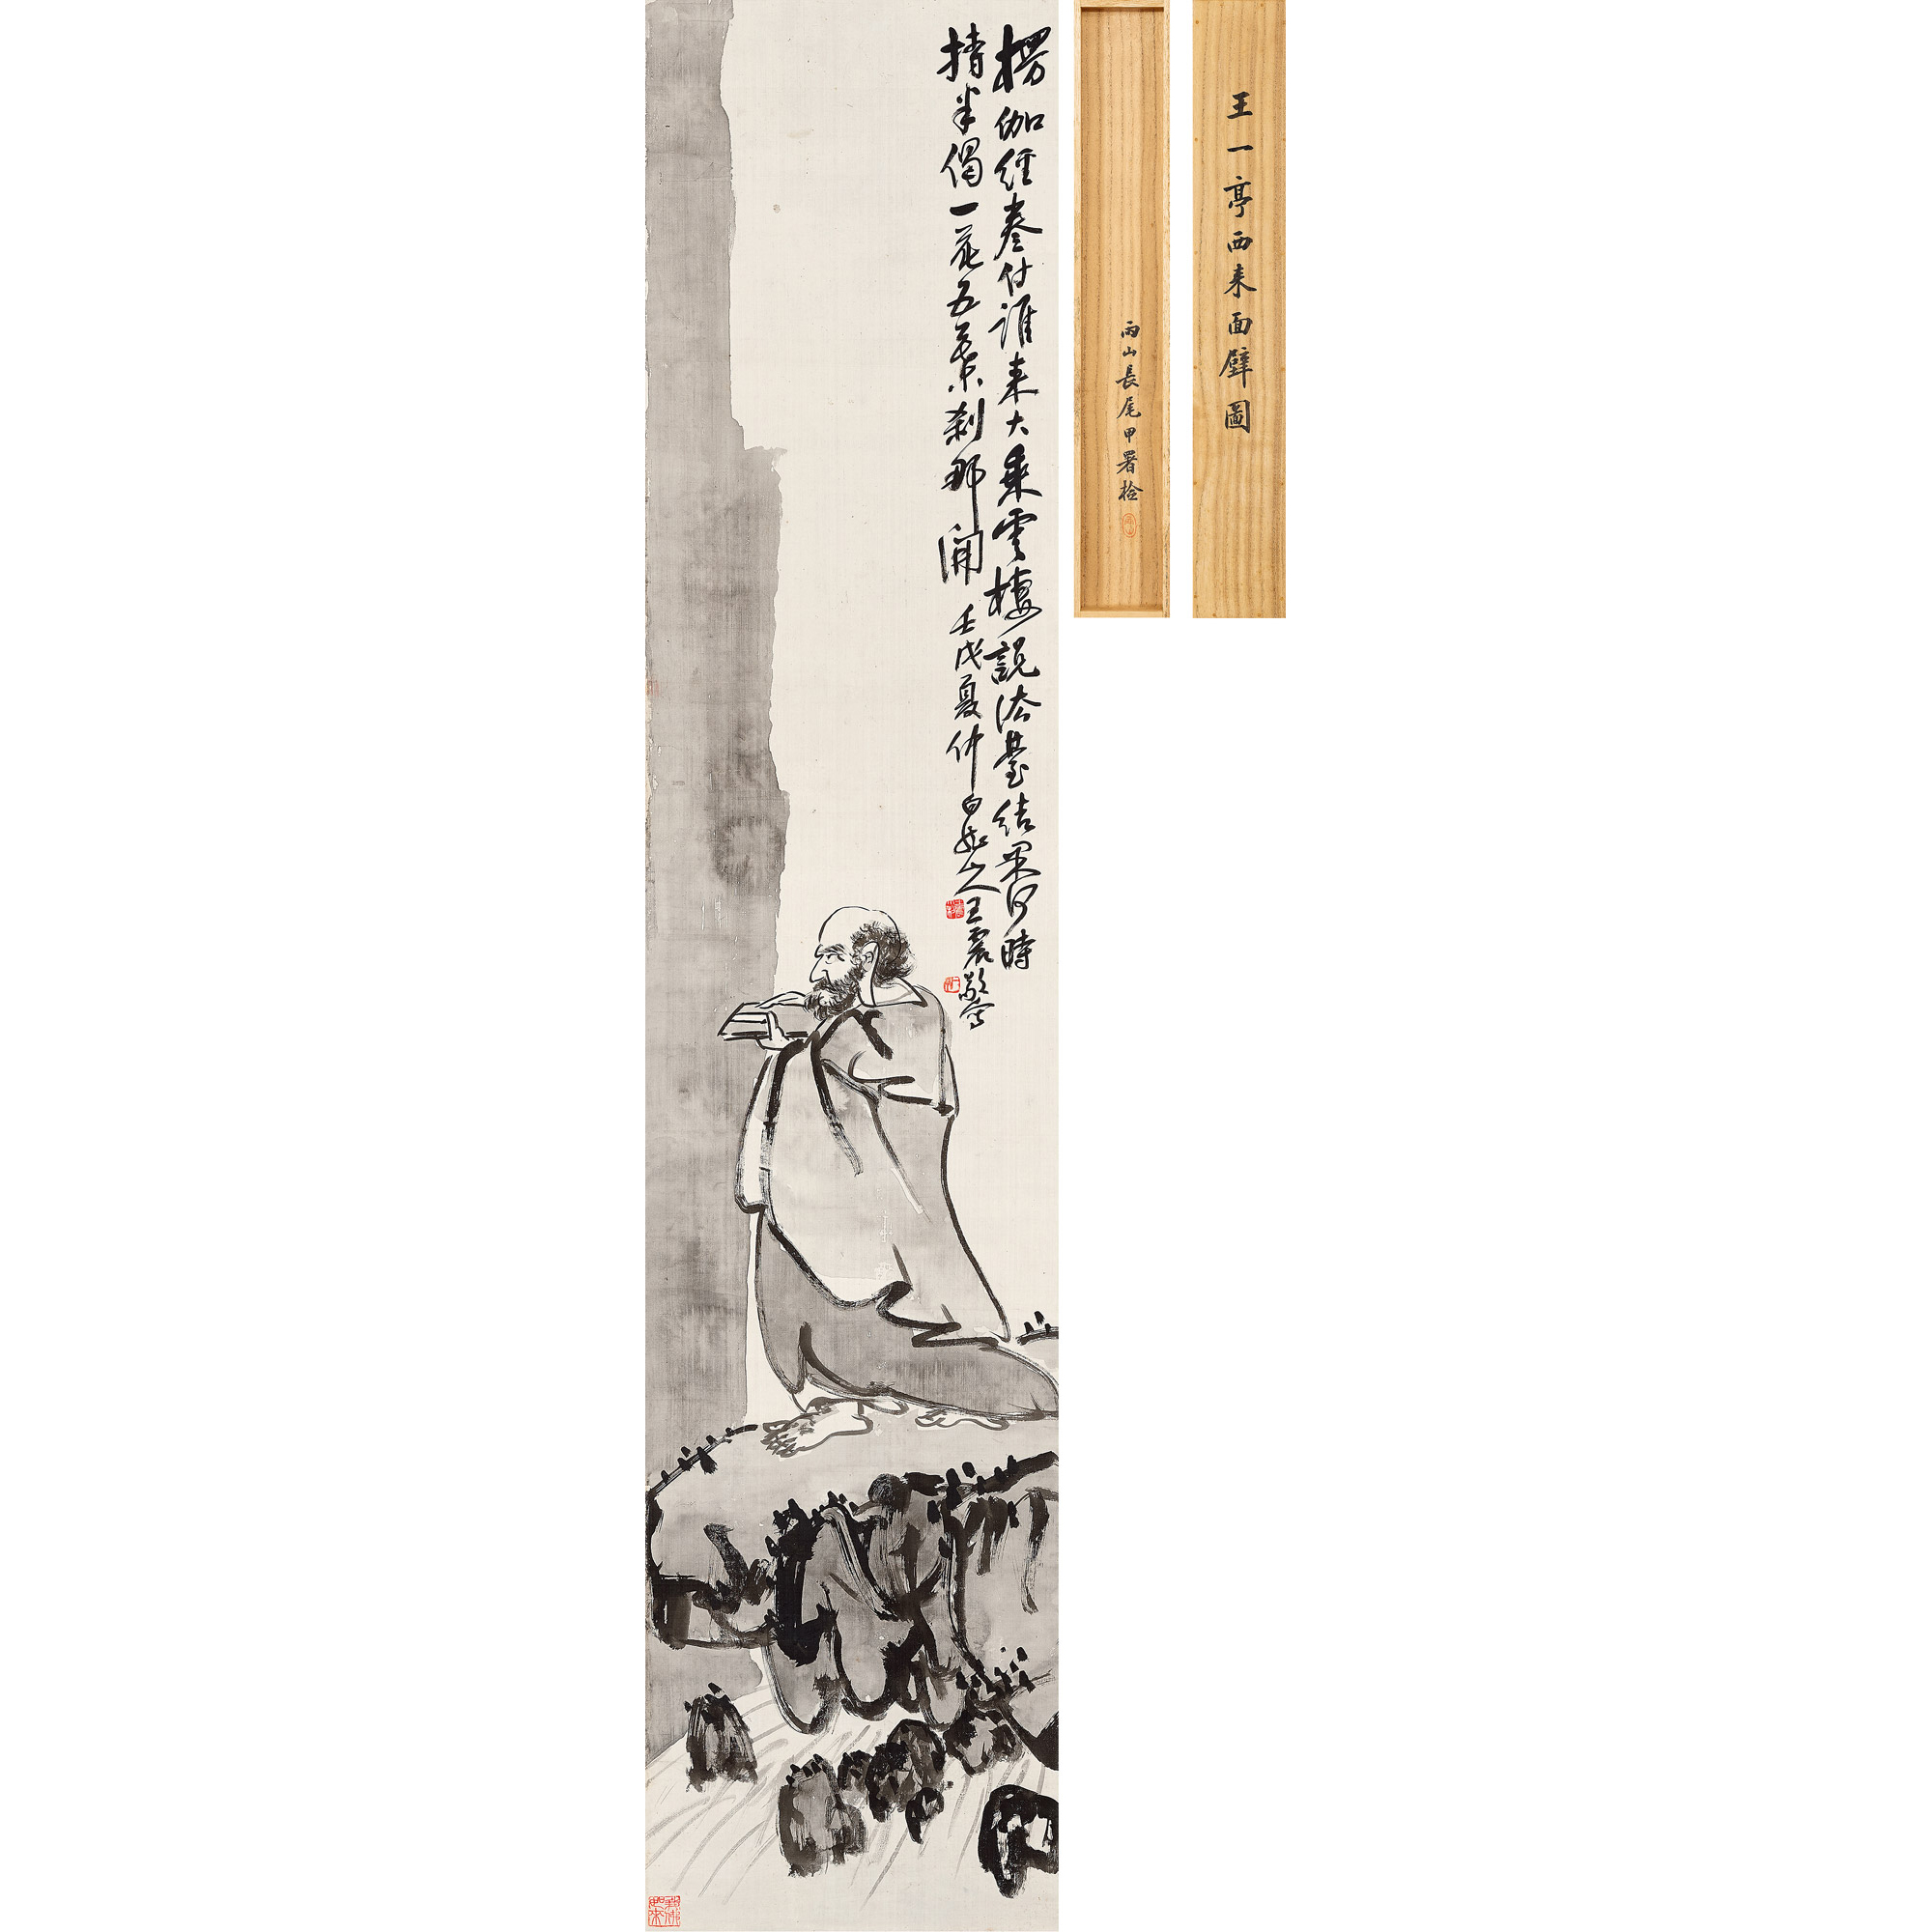 楞伽經卷付誰來大乘雲棲說法臺結果何時
揩半偈一花五葉刹那開
壬戌夏仲白龍山人王震敬寫
雨山長尾甲署檢
王一亭西來面壁圖